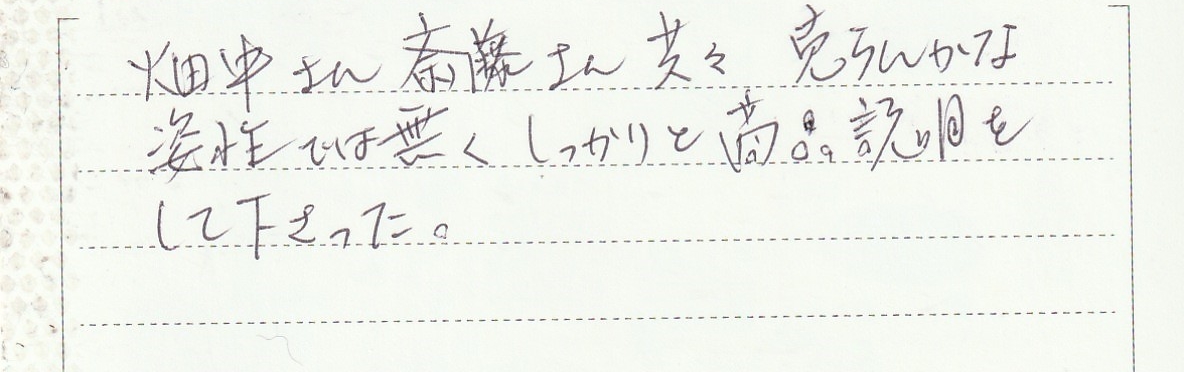 畑中さん斎藤さん共々 売らんかな
姿性では無くしっかりと商品説明を
して下さった。